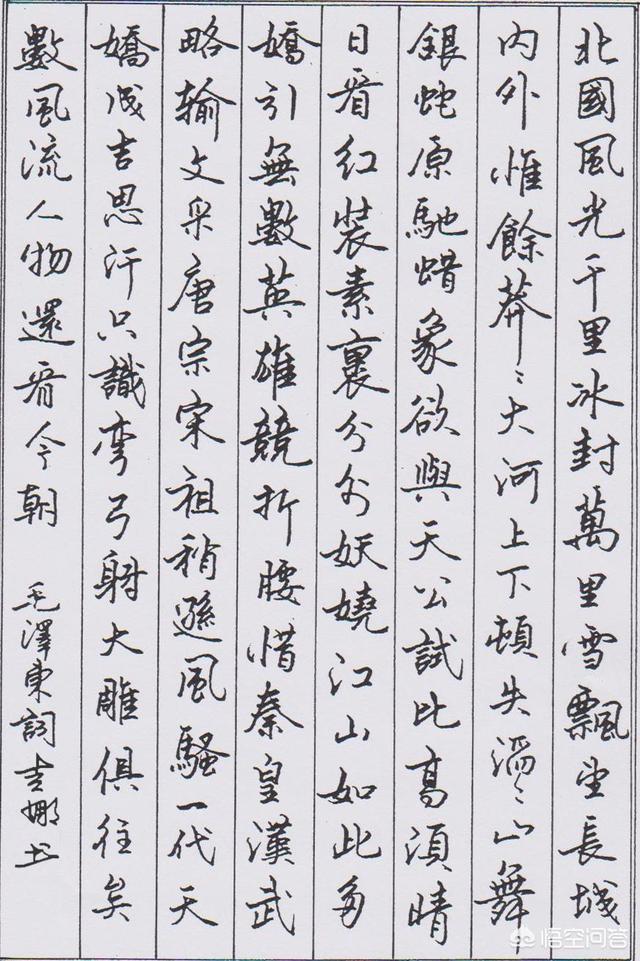 北國風光千里冰封萬里雪飄望長城
内外惟餘莽〻大河上下頓失滔〻山舞
銀蛇原馳蜡象欲與天公試比高須晴
日看红裝素裹分外妖娆江山如此多
嬌引無數英雄競折腰惜秦皇漢武
略输文采唐宗宋祖稍遜風騷一代天
嬌成吉思汗只識弯弓射大雕俱往矣
數風流人物還看今朝 毛澤東詞吉娜书
悟空问答